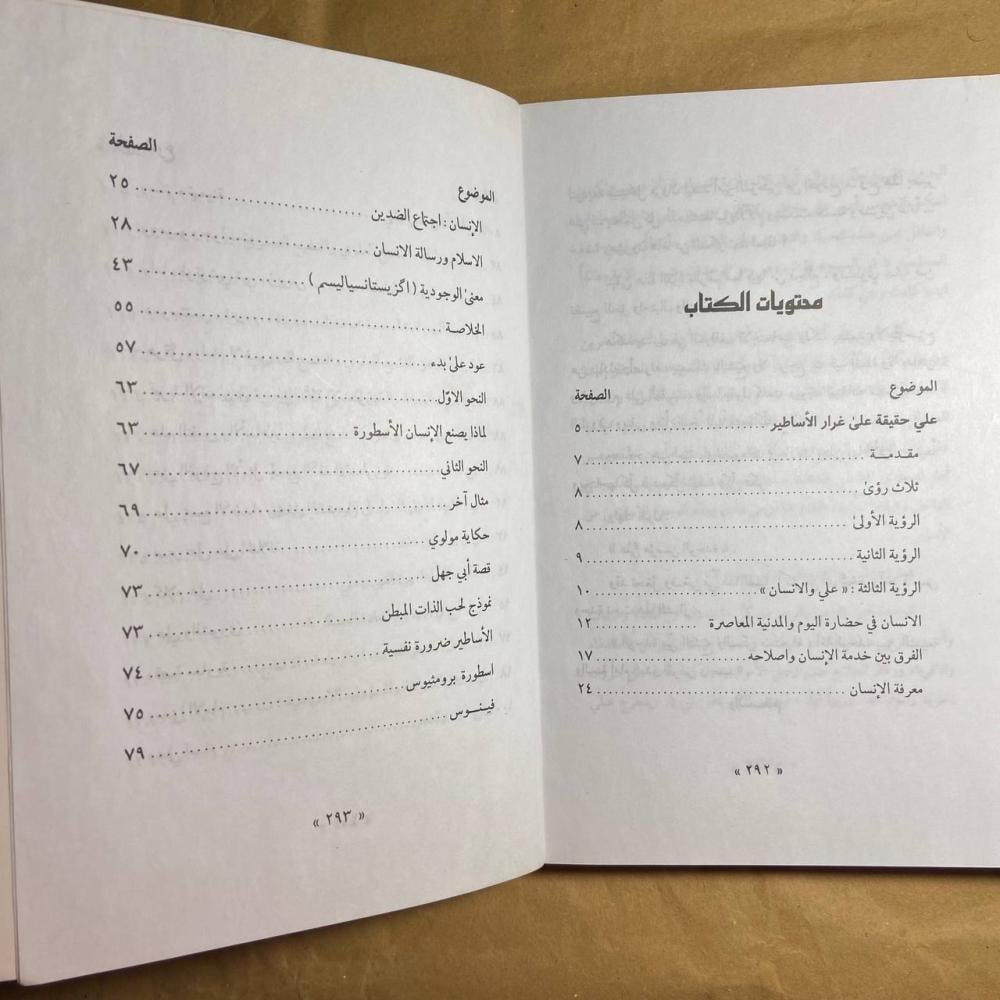 محتويات الكتاب
الموضوع الصفحة
علي حقيقة علىٰ غرار الأساطير ........................ ٥
مقدمـة ........................ ٧
ثلاث رؤىٰ ........................ ٨
الرؤية الأولىٰ ........................ ٨
الرؤية الثانية ........................ ٩
الرؤية الثالثة : « علي والانسان » ........................ ١٠
الانسان في حضارة اليوم والمدنية المعاصرة ........................ ١٢
الفرق بين خدمة الإنسان واصلاحه ........................ ١٧
معرفة الإنسان ........................ ٢٤
« ٢٩٢ »
الموضوع الصفحة
الإنسان : اجتماع الضدين ........................ ٢٥
الاسلام ورسالة الانسان ........................ ٢٨
معنىٰ الوجودية ( اگزيستانسياليسم ) ........................ ٤٣
الخلاصة ........................ ٥٥
عود علىٰ بدء ........................ ٥٧
النحو الاوّل ........................ ٦٣
لماذا يصنع الإنسان الأسطورة ........................ ٦٣
النحو الثاني ........................ ٦٧
مثال آخر ........................ ٦٩
حكاية مولوي ........................ ٧٠
قصة أبي جهل ........................ ٧٣
نموذج لحب الذات المبطن ........................ ٧٣
الأساطير ضرورة نفسية ........................ ٧٤
اسطورة برومثيوس ........................ ٧٥
فينـوس ........................ ٧٩
« ٢٩٣ »